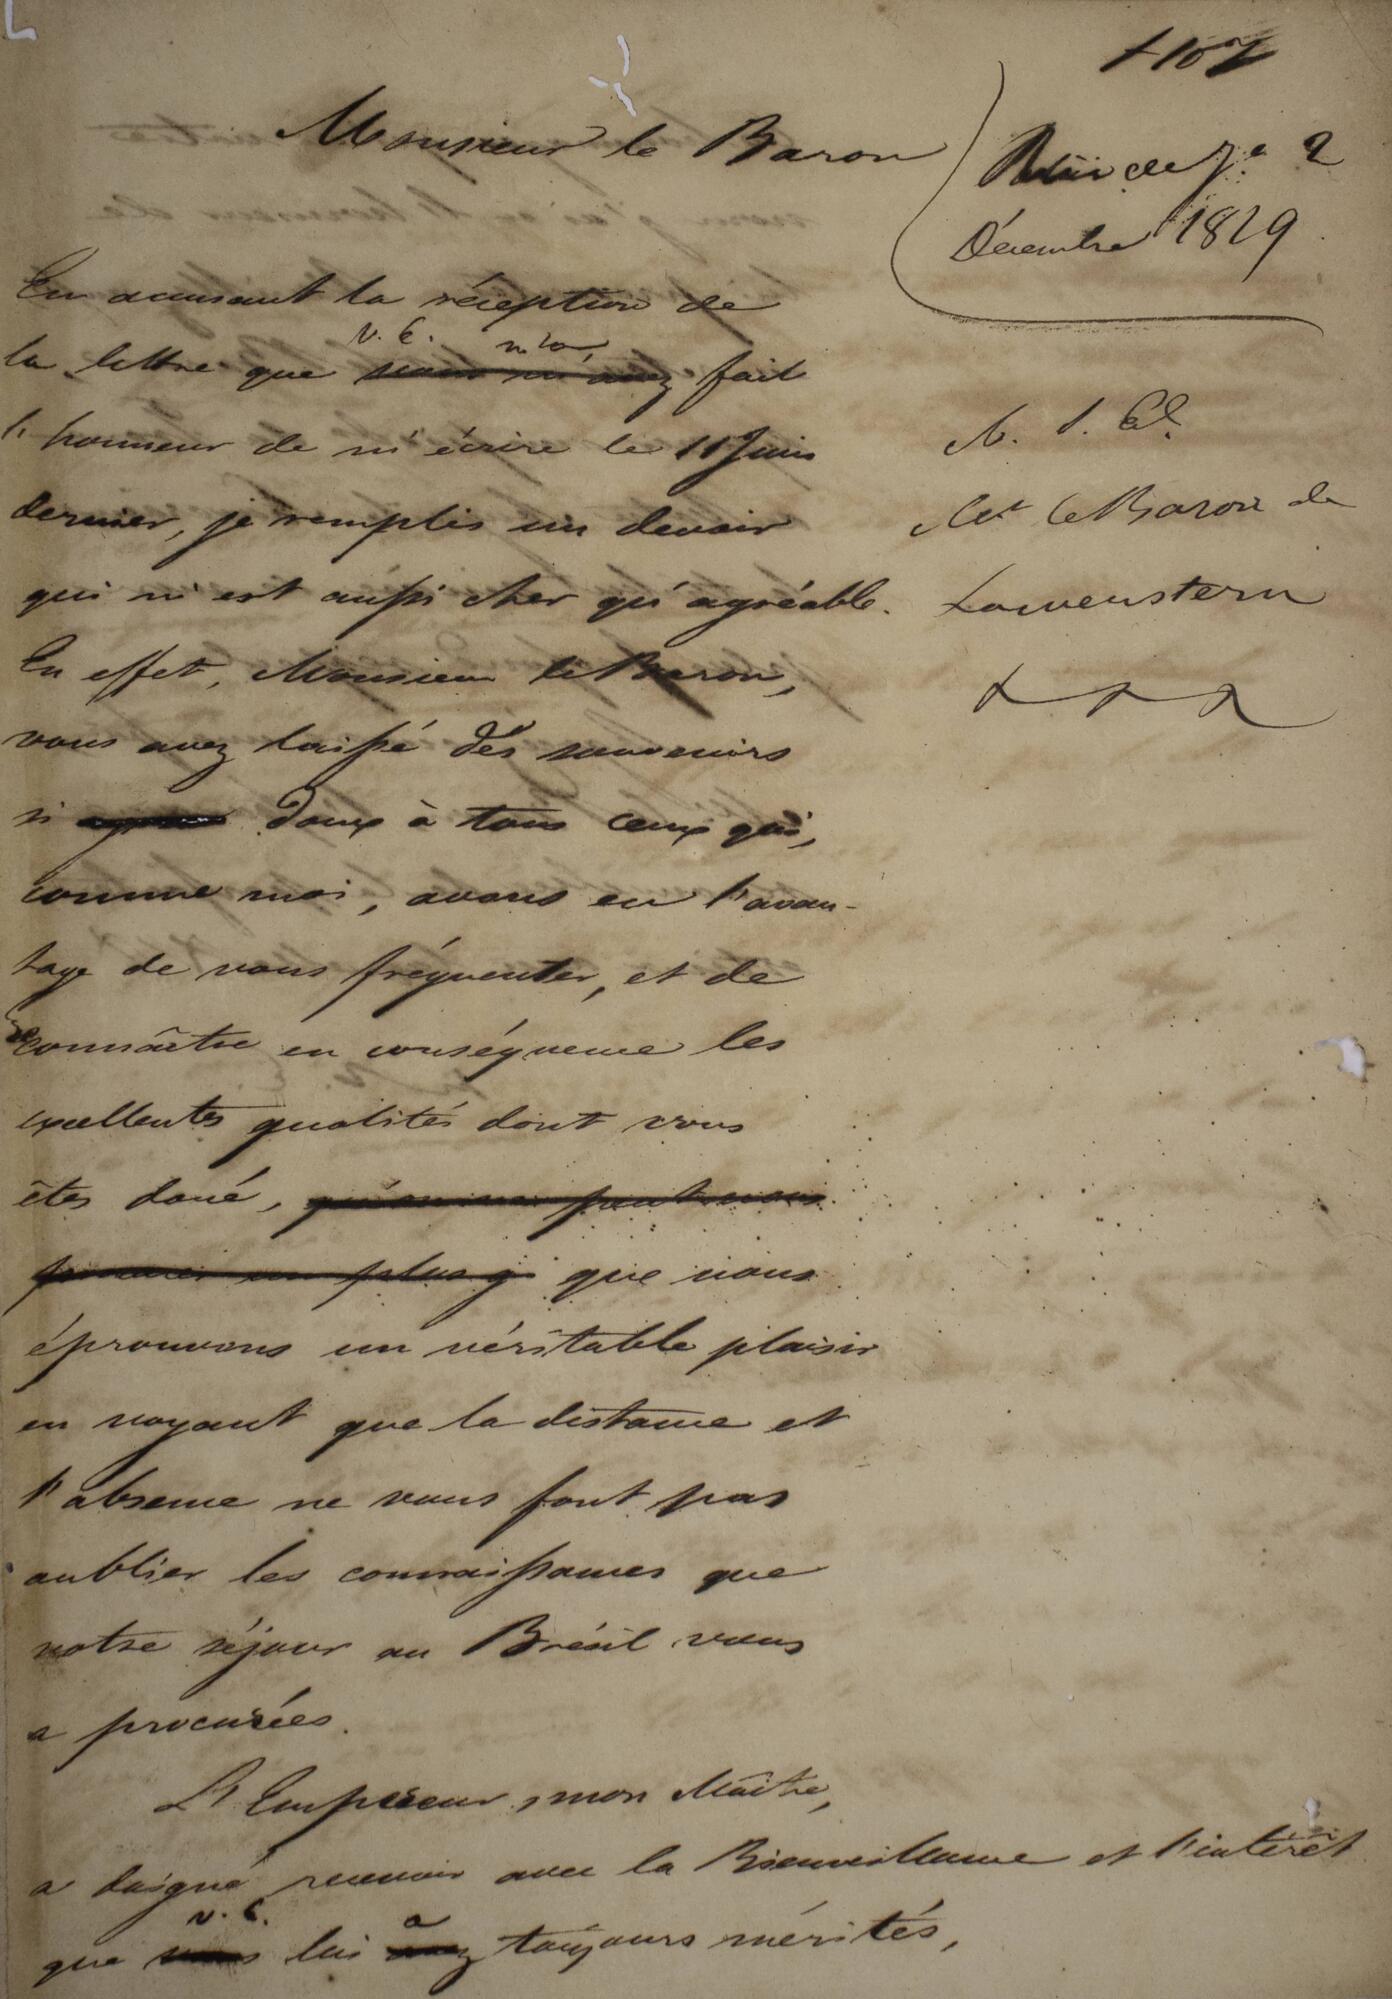 107
Monsieur le Baron
Rio de J.º 2
Décembre 1829
En accusant la réception de
V. E. m'a
la lettre que vous m'avez fait
l'honneur de m'écrire le 11 Juin
dernier, je remplis un devoir
qui m'est aussi cher qu'agréable.
En effet, Monsieur le Baron,
vous avez laissé des souvenirs
si doux à tous ceux qui,
comme moi, avons eu l'avan-
tage de vous fréquenter, et de
connaître en conséquence les
excellentes qualités dont vous
êtes doué, qu'on ne peut
plus que nous
éprouvons un véritable plaisir
en voyant que la distance et
l'absence ne vous font pas
oublier les connaissances que
votre séjour au Brésil vous
a procurées.
L'Empereur, mon Maître,
a daigné recevoir avec la Bienveillance et l'intérêt
V. E. a
que vous lui avez toujours mérités,
A. S. E.
Mr le Baron de
Lowenstern